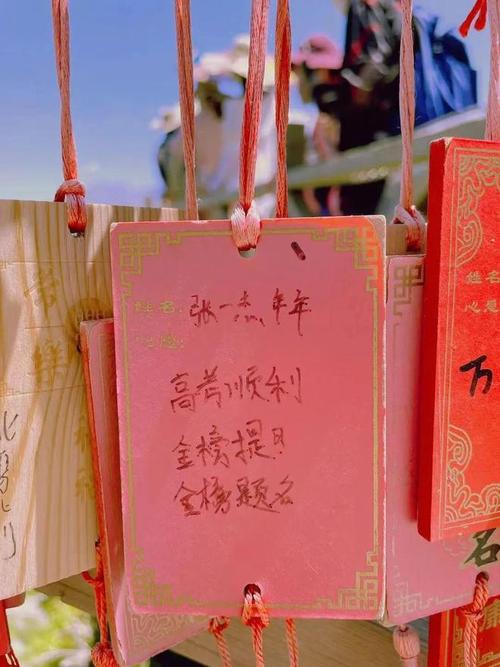 姓名：张一杰、年年
心愿：
高考顺利
金榜提日
金榜题名
姓名
心愿
万
名